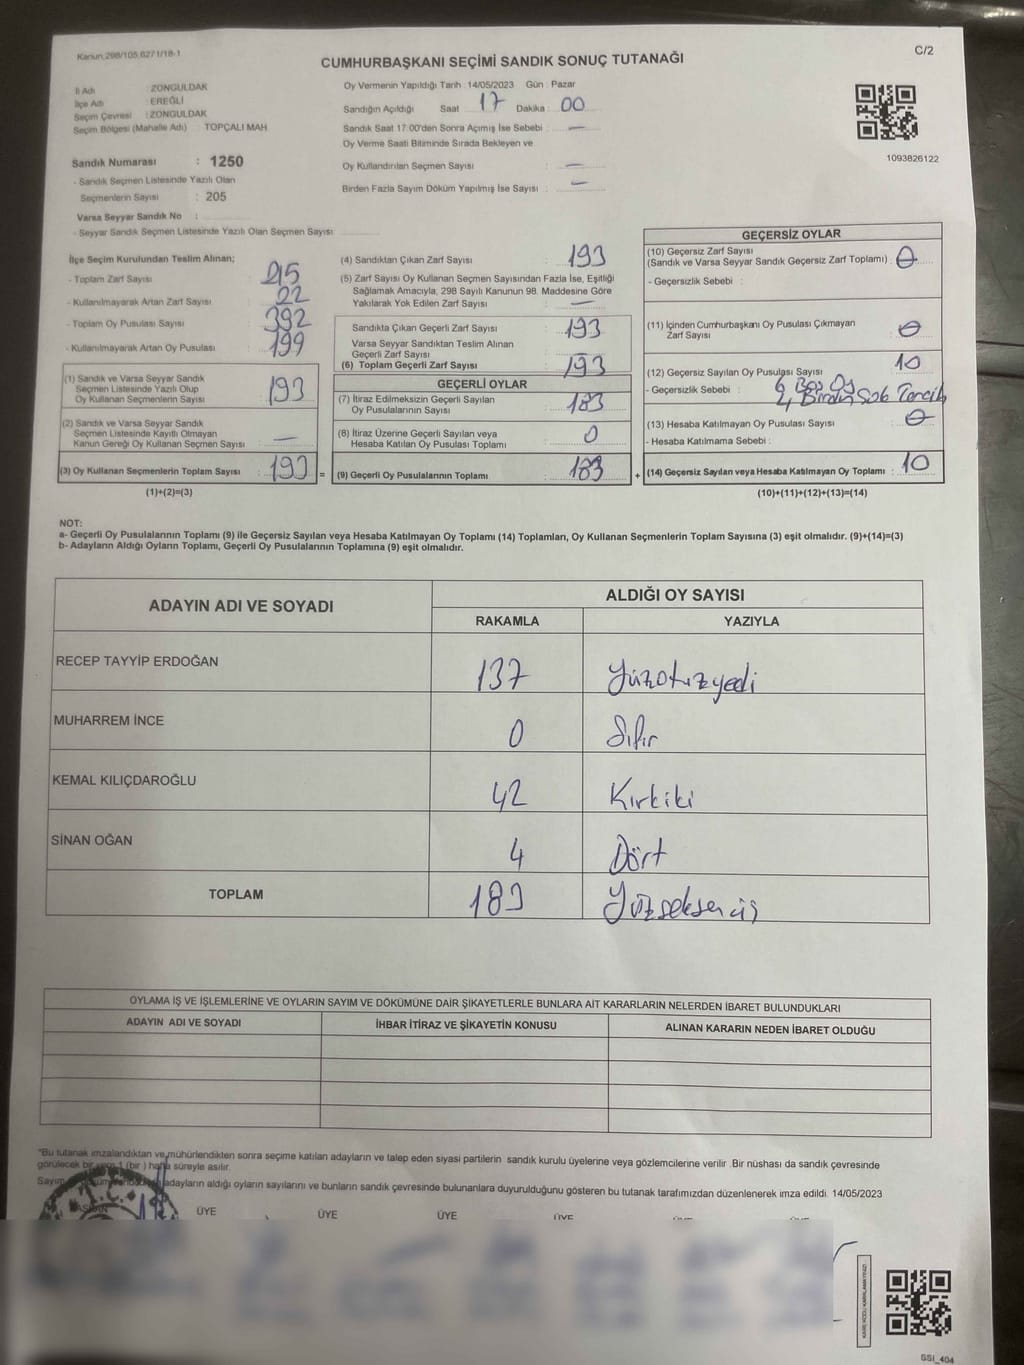 Kanun:298/105,6271/18-1
C/2
CUMHURBAŞKANI SEÇİMİ SANDIK SONUÇ TUTANAĞI
İl Adı : ZONGULDAK
İlçe Adı : EREĞLİ
Seçim Çevresi : ZONGULDAK
Seçim Bölgesi (Mahalle Adı) : TOPÇALI MAH
Sandık Numarası : 1250
- Sandık Seçmen Listesinde Yazılı Olan
Seçmenlerin Sayısı : 205
Varsa Seyyar Sandık No :
- Seyyar Sandık Seçmen Listesinde Yazılı Olan Seçmen Sayısı
Oy Vermenin Yapıldığı Tarih : 14/05/2023 Gün : Pazar
Sandığın Açıldığı Saat 17 Dakika : 00
Sandık Saat 17:00'den Sonra Açımış İse Sebebi : —
Oy Verme Saati Bitiminde Sırada Bekleyen ve
Oy Kullandırılan Seçmen Sayısı : —
Birden Fazla Sayım Döküm Yapılmış İse Sayısı : —
1093826122
İlçe Seçim Kurulundan Teslim Alınan;
- Toplam Zarf Sayısı : 215
- Kullanılmayarak Artan Zarf Sayısı : 22
- Toplam Oy Pusulası Sayısı : 392
- Kullanılmayarak Artan Oy Pusulası : 199
(1) Sandık ve Varsa Seyyar Sandık
Seçmen Listesinde Yazılı Olup
Oy Kullanan Seçmenlerin Sayısı : 193
(2) Sandık ve Varsa Seyyar Sandık
Seçmen Listesinde Kayıtlı Olmayan
Kanun Gereği Oy Kullanan Seçmen Sayısı : —
(3) Oy Kullanan Seçmenlerin Toplam Sayısı : 193
(1)+(2)=(3)
(4) Sandıktan Çıkan Zarf Sayısı : 193
(5) Zarf Sayısı Oy Kullanan Seçmen Sayısından Fazla İse, Eşitliği
Sağlamak Amacıyla, 298 Sayılı Kanunun 98. Maddesine Göre
Yakılarak Yok Edilen Zarf Sayısı : —
Sandıkta Çıkan Geçerli Zarf Sayısı : 193
Varsa Seyyar Sandıktan Teslim Alınan
Geçerli Zarf Sayısı :
(6) Toplam Geçerli Zarf Sayısı : 193
GEÇERLİ OYLAR
(7) İtiraz Edilmeksizin Geçerli Sayılan
Oy Pusulalarının Sayısı : 183
(8) İtiraz Üzerine Geçerli Sayılan veya
Hesaba Katılan Oy Pusulası Toplamı : 0
= (9) Geçerli Oy Pusulalarının Toplamı : 183
GEÇERSİZ OYLAR
(10) Geçersiz Zarf Sayısı
(Sandık ve Varsa Seyyar Sandık Geçersiz Zarf Toplamı) : 0
- Geçersizlik Sebebi :
(11) İçinden Cumhurbaşkanı Oy Pusulası Çıkmayan
Zarf Sayısı : 0
(12) Geçersiz Sayılan Oy Pusulası Sayısı : 10
- Geçersizlik Sebebi : 6 Boş Oy
4 Birden Çok Tercih
(13) Hesaba Katılmayan Oy Pusulası Sayısı : 0
- Hesaba Katılmama Sebebi :
+ (14) Geçersiz Sayılan veya Hesaba Katılmayan Oy Toplamı : 10
(10)+(11)+(12)+(13)=(14)
NOT:
a- Geçerli Oy Pusulalarının Toplamı (9) ile Geçersiz Sayılan veya Hesaba Katılmayan Oy Toplamı (14) Toplamları, Oy Kullanan Seçmenlerin Toplam Sayısına (3) eşit olmalıdır. (9)+(14)=(3)
b- Adayların Aldığı Oyların Toplamı, Geçerli Oy Pusulalarının Toplamına (9) eşit olmalıdır.
ADAYIN ADI VE SOYADI
ALDIĞI OY SAYISI
RAKAMLA YAZIYLA
RECEP TAYYİP ERDOĞAN 137 Yüzotuzyedi
MUHARREM İNCE 0 Sıfır
KEMAL KILIÇDAROĞLU 42 Kırkiki
SİNAN OĞAN 4 Dört
TOPLAM 183 Yüzseksenüç
OYLAMA İŞ VE İŞLEMLERİNE VE OYLARIN SAYIM VE DÖKÜMÜNE DAİR ŞİKAYETLERLE BUNLARA AİT KARARLARIN NELERDEN İBARET BULUNDUKLARI
ADAYIN ADI VE SOYADI İHBAR İTİRAZ VE ŞİKAYETİN KONUSU ALINAN KARARIN NEDEN İBARET OLDUĞU
"Bu tutanak imzalandıktan ve mühürlendikten sonra seçime katılan adayların ve talep eden siyasi partilerin sandık kurulu üyelerine veya gözlemcilerine verilir .Bir nüshası da sandık çevresinde
görülecek bir 1 (bir ) hafta süreyle asılır.
Sayım adayların aldığı oyların sayılarını ve bunların sandık çevresinde bulunanlara duyurulduğunu gösteren bu tutanak tarafımızdan düzenlenerek imza edildi. 14/05/2023
BAŞKAN ÜYE ÜYE ÜYE ÜYE
KARE KODU KARALAMAYINIZ!
SSI_404